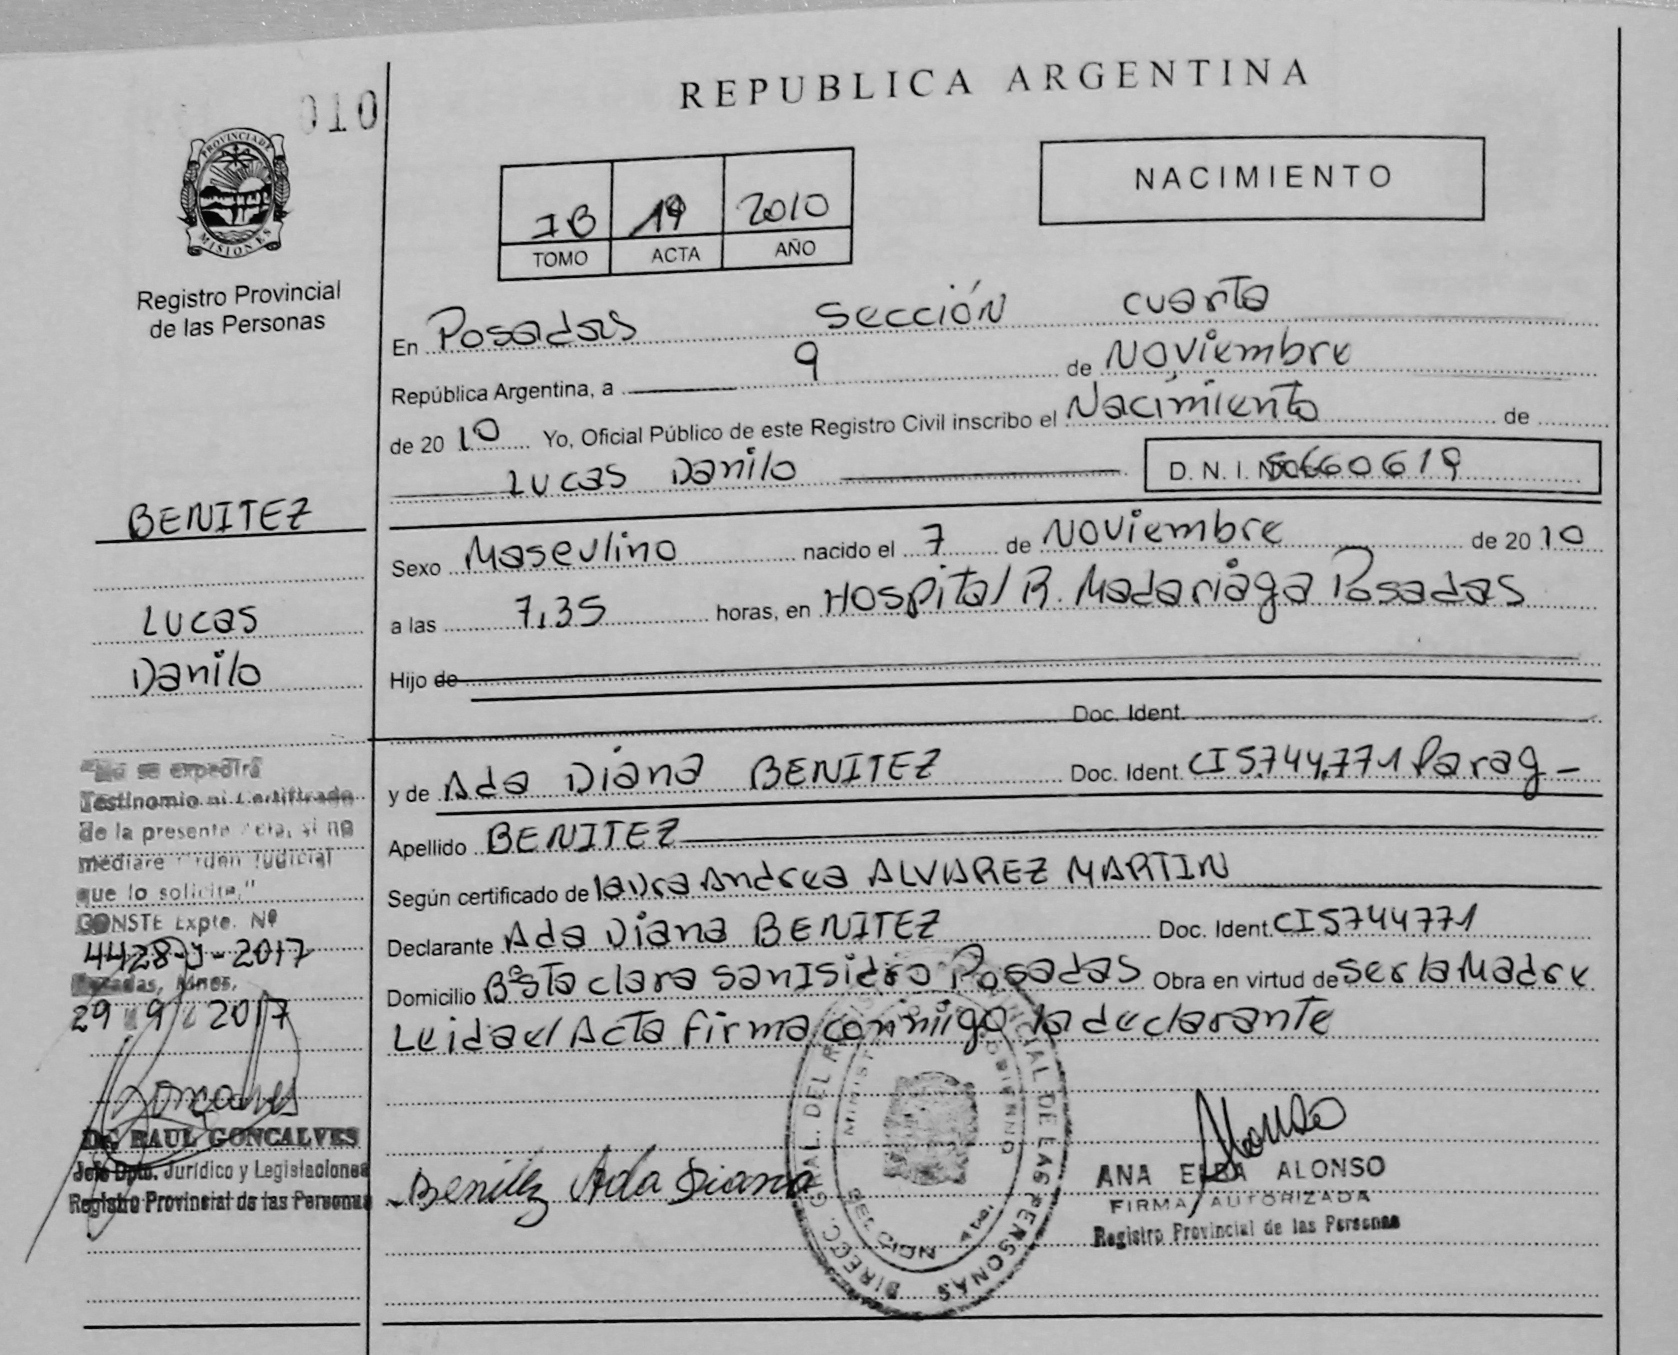 REPUBLICA ARGENTINA
010
PROVINCIA DE
MISIONES
Registro Provincial
de las Personas
NACIMIENTO
19 2010
TOMO ACTA AÑO
En Posadas Sección cuarta
República Argentina, a 9 de Noviembre
de 2010 Yo, Oficial Público de este Registro Civil inscribo el Nacimiento de
Lucas Danilo D. N. I.
BENITEZ
Sexo Masculino nacido el 7 de Noviembre de 2010
Lucas
a las 7,35 horas, en Hospital R. Madariaga Posadas
Danilo
Hijo de
Doc. Ident.
y de Ada Diana BENITEZ Doc. Ident. CI 5.744.771 Parag-
Apellido BENITEZ
Según certificado de Laura Andrea ALVAREZ MARTIN
Declarante Ada Diana BENITEZ Doc. Ident. CI 5744771
Domicilio Bº Sta clara San Isidro Posadas Obra en virtud de ser la Madre
Leida el Acta firma conmigo la declarante
"No se expedirá
Testimonio ni Certificado
de la presente Acta, si no
mediare Orden Judicial
que lo solicite,"
CONSTE Expte. Nº
4428-J-2017
Posadas, Mnes,
29 9 2017
Goncalves
Dr. RAUL GONCALVES
Jefe Dpto. Jurídico y Legislaciones
Registro Provincial de las Personas
Benitez Ada Diana
DE LAS PERSONAS
Alonso
ANA ELBA ALONSO
FIRMA AUTORIZADA
Registro Provincial de las Personas